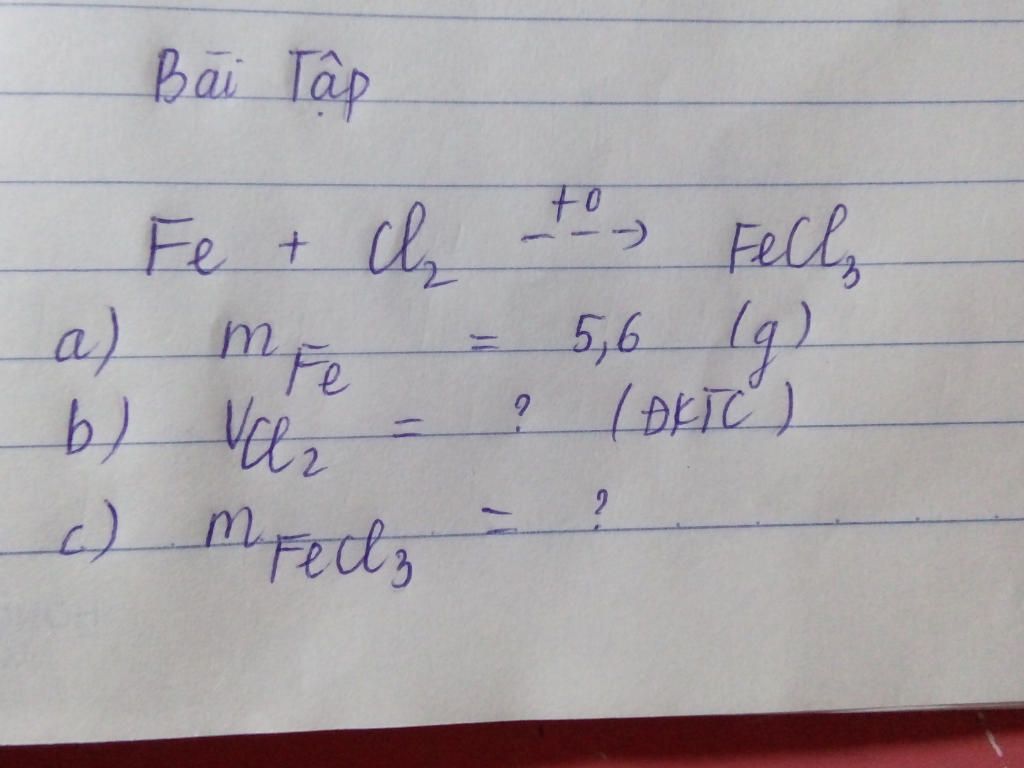 Bài Tập
Fe + Cl₂ --t0--> FeCl₃
a) m Fe = 5,6 (g)
b) VCl₂ = ? (ĐKTC)
c) m FeCl₃ = ?